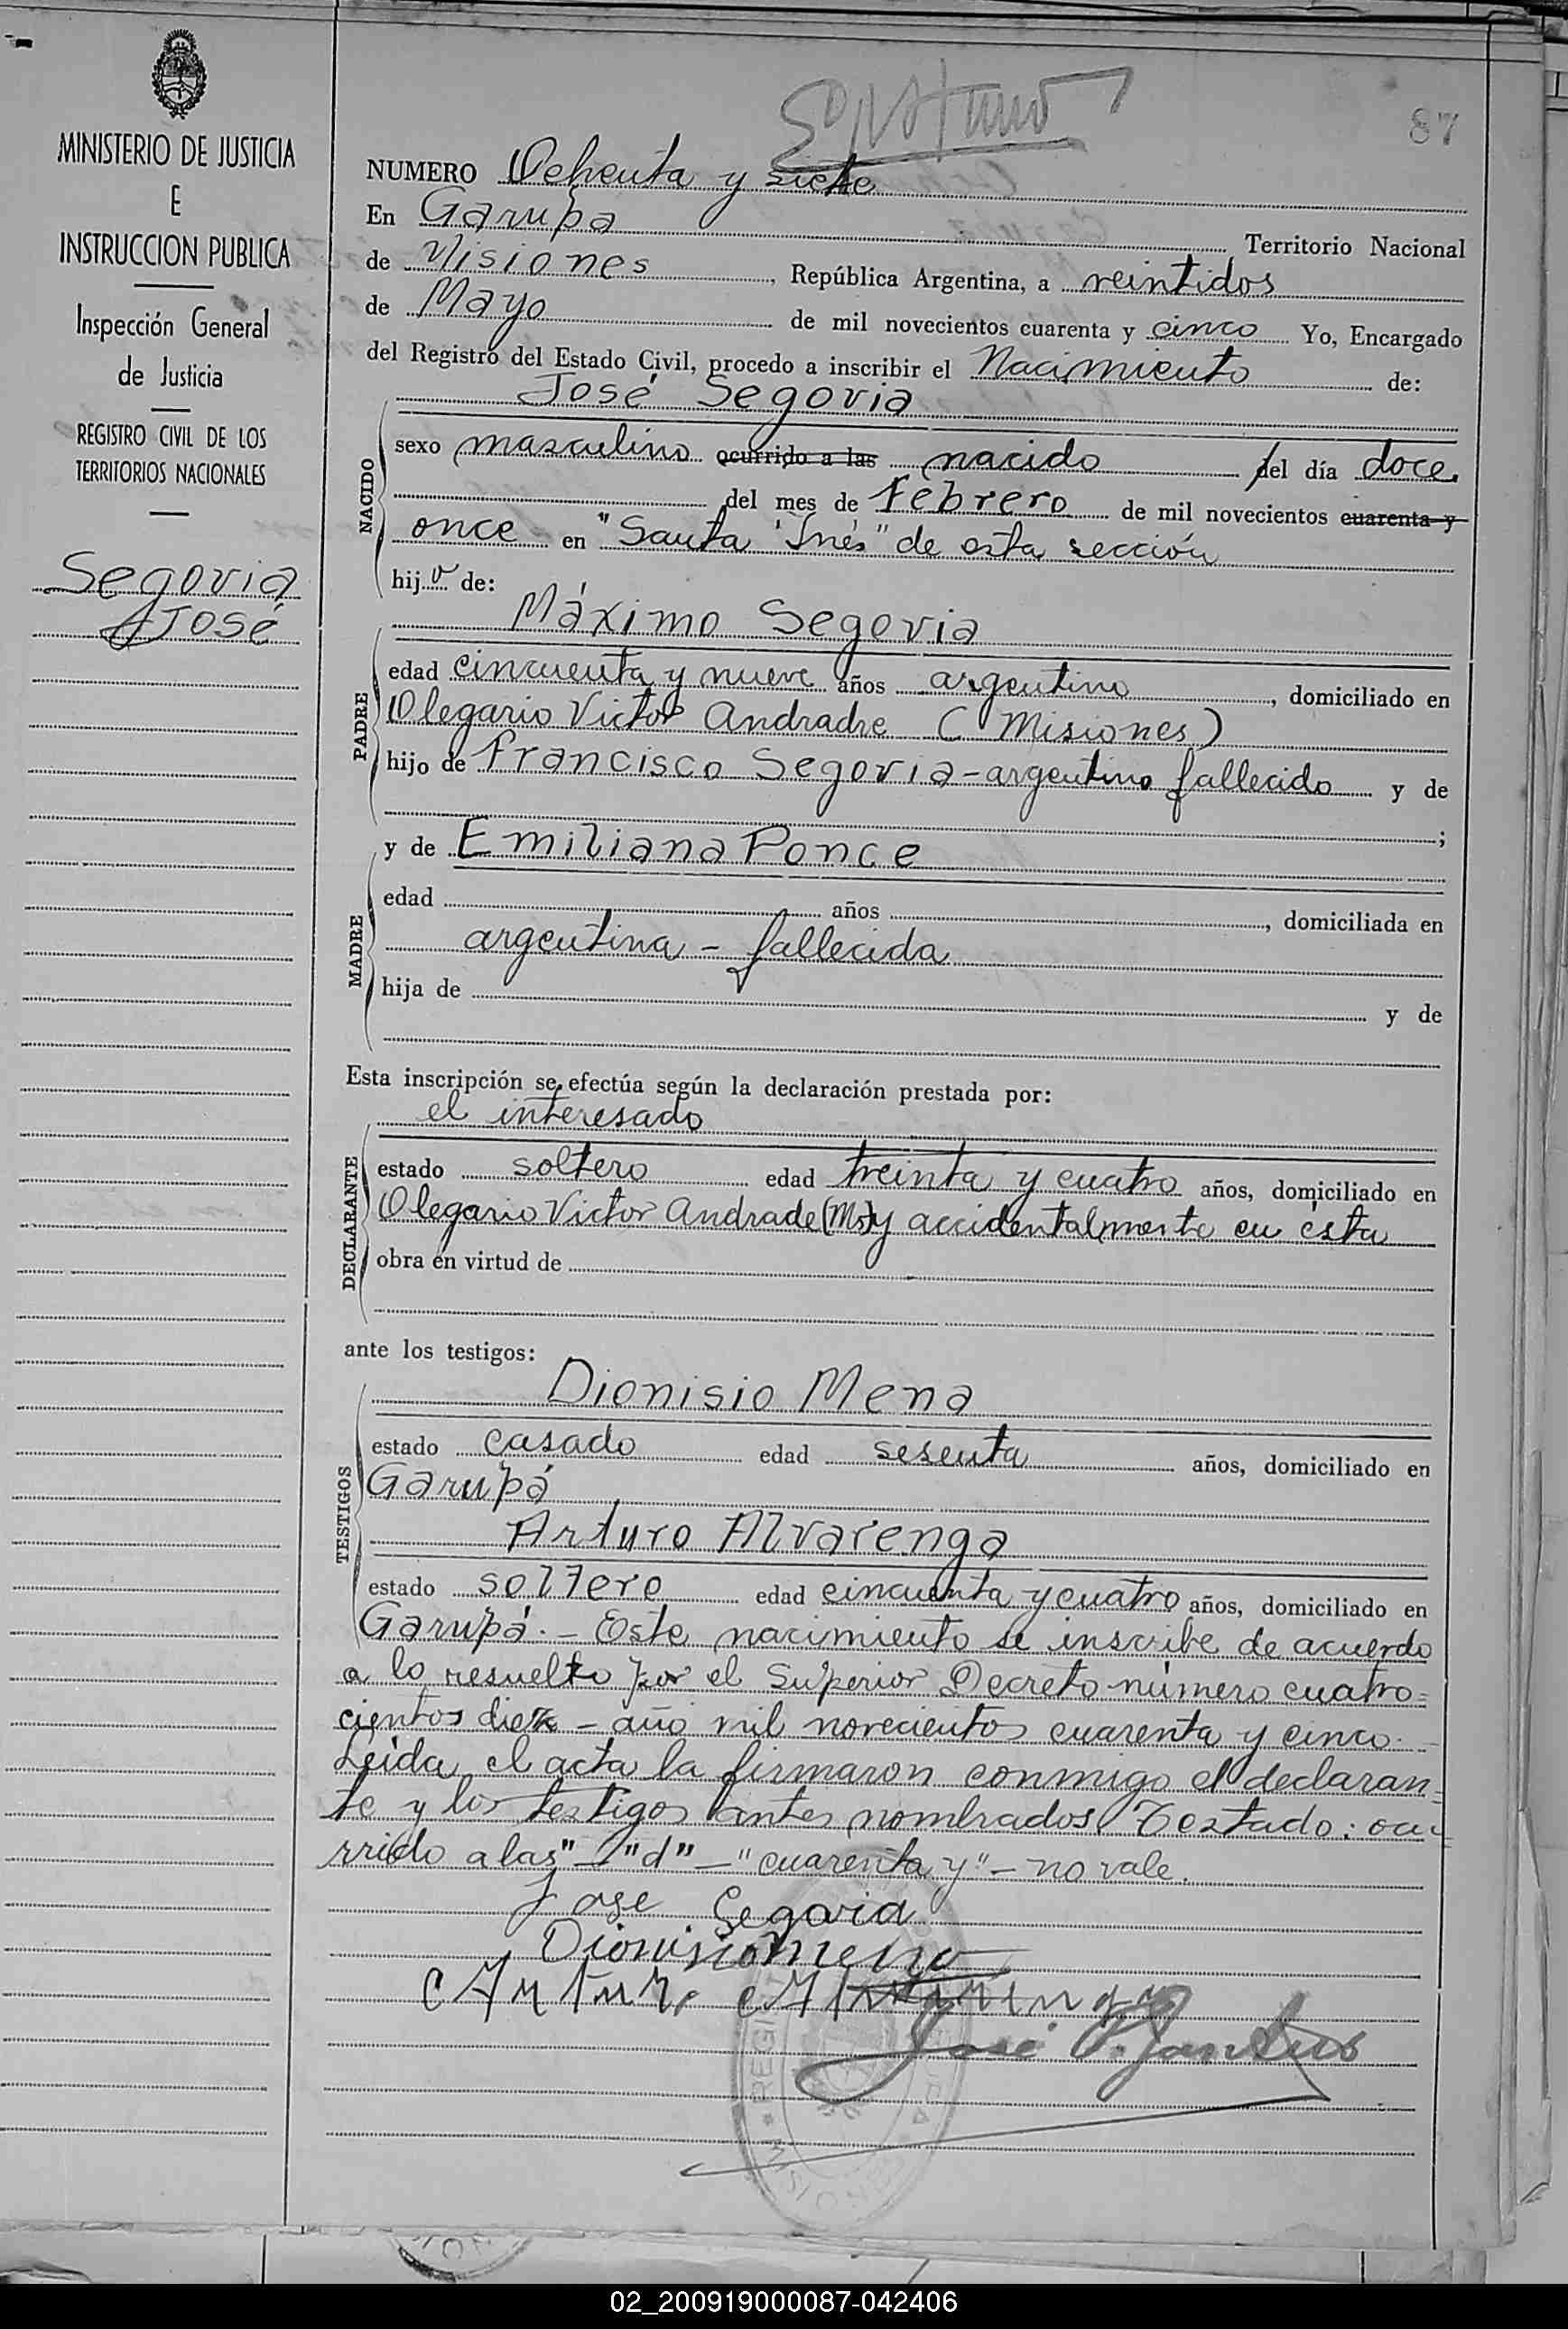 MINISTERIO DE JUSTICIA
E
INSTRUCCION PUBLICA
Inspección General
de Justicia
REGISTRO CIVIL DE LOS
TERRITORIOS NACIONALES
Segovia
José
87
NUMERO Ochenta y siete
En Garupá Territorio Nacional
de Misiones, República Argentina, a veintidos
de Mayo de mil novecientos cuarenta y cinco Yo, Encargado
del Registro del Estado Civil, procedo a inscribir el Nacimiento de:
José Segovia
NACIDO
sexo masculino ocurrido a las nacido del día doce
del mes de Febrero de mil novecientos cuarenta y
once en "Santa Inés" de esta sección
hijo de:
Máximo Segovia
PADRE
edad cincuenta y nueve años argentino, domiciliado en
Olegario Victor Andrade (Misiones)
hijo de Francisco Segovia - argentino fallecido y de
;
y de Emiliana Ponce
MADRE
edad años , domiciliada en
argentina - fallecida
hija de y de
Esta inscripción se efectúa según la declaración prestada por:
el interesado
DECLARANTE
estado soltero edad treinta y cuatro años, domiciliado en
Olegario Victor Andrade (Ms) y accidentalmente en ésta
obra en virtud de
ante los testigos:
Dionisio Mena
TESTIGOS
estado casado edad sesenta años, domiciliado en
Garupá
Arturo Alvarenga
estado soltero edad cincuenta y cuatro años, domiciliado en
Garupá. - Este nacimiento se inscribe de acuerdo
a lo resuelto por el Superior Decreto número cuatro=
cientos diez - año mil novecientos cuarenta y cinco.
Leida el acta la firmaron conmigo el declaran=
te y los testigos antes nombrados Testado: ocu=
rrido a las" - "d" - "cuarenta y" - no vale.
Jose Segovia
Dionisio Mena
Arturo Alvarenga
José
02_200919000087-042406